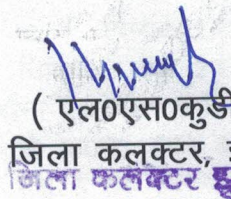 ( एल0एस0कुडी
जिला कलक्टर,
जिला कलक्टर